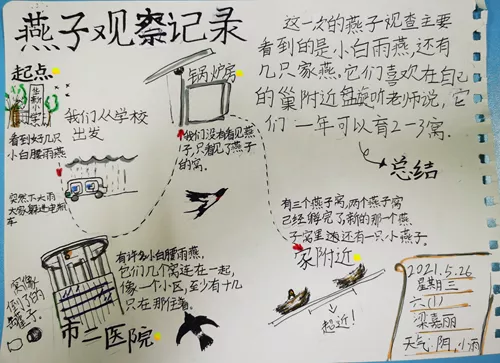 燕子观察记录
起点
我们从学校
出发
看到好几只
小白腰雨燕
突然下大雨
大家躲进电瓶
车
锅炉房
我们没有看见燕
子,只看见了燕子
的窝.
这一次的燕子观查主要
看到的是小白雨燕,还有
几只家燕.它们喜欢在自己
的巢附近盘旋听老师说,它
们一年可以育2-3窝.
总结
有三个燕子窝,两个燕子窝
已经孵完了新的那一个燕
子窝里边还有一只小燕子.
家附近
超近!
有许多小白腰雨燕,
它们几个窝连在一起,
像一个小区,至少有十几
只在那住着.
窝像
倒了的
罐子.
市二医院
2021.5.26
星期三
六(1)
梁嘉丽
天气:阴,小雨